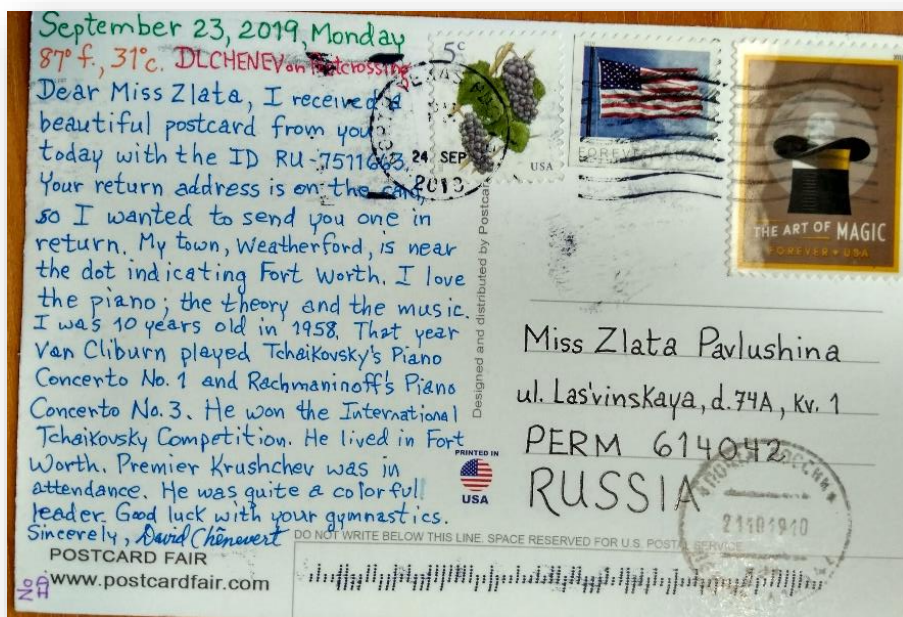 September 23, 2019, Monday
87° f., 31° c. DLCHENEV on Postcrossing
Dear Miss Zlata, I received a
beautiful postcard from you
today with the ID RU-7511663.
Your return address is on the card,
so I wanted to send you one in
return. My town, Weatherford, is near
the dot indicating Fort Worth. I love
the piano; the theory and the music.
I was 10 years old in 1958. That year
Van Cliburn played Tchaikovsky's Piano
Concerto No. 1 and Rachmaninoff's Piano
Concerto No. 3. He won the International
Tchaikovsky Competition. He lived in Fort
Worth. Premier Krushchev was in
attendance. He was quite a colorful
leader. Good luck with your gymnastics.
Sincerely, David Chênevert
POSTCARD FAIR
www.postcardfair.com
Designed and distributed by Postcard
PRINTED IN
USA
5c
USA
TEXAS
24 SEP
FOREVER USA
THE ART OF MAGIC
FOREVER • USA
Miss Zlata Pavlushina
ul. Las'vinskaya, d. 74A, Kv. 1
PERM 614042
RUSSIA
ПОЧТА РОССИИ
DO NOT WRITE BELOW THIS LINE. SPACE RESERVED FOR U.S. POSTAL SERVICE